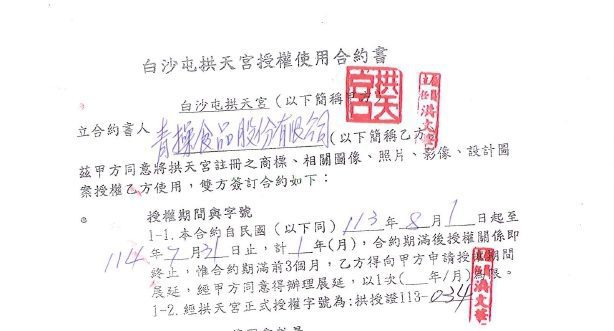 白沙屯拱天宮授權使用合約書
白沙屯拱天宮(以下簡稱甲方)
拱天宮
主任 洪文華
立合約書人 青操食品股份有限公司(以下簡稱乙方)
茲甲方同意將拱天宮註冊之商標、相關圖像、照片、影像、設計圖
案授權乙方使用,雙方簽訂合約如下:
授權期間與字號
1-1.本合約自民國(以下同)113年8月1日起至
114年7月31日止,計1年(月),合約期滿後授權關係即
終止,惟合約期滿前3個月,乙方得向甲方申請授權期間
展延,經甲方同意得辦理展延,以1次(__年/月)為限。
1-2.經拱天宮正式授權字號為:拱授證113-034
主任 洪文華